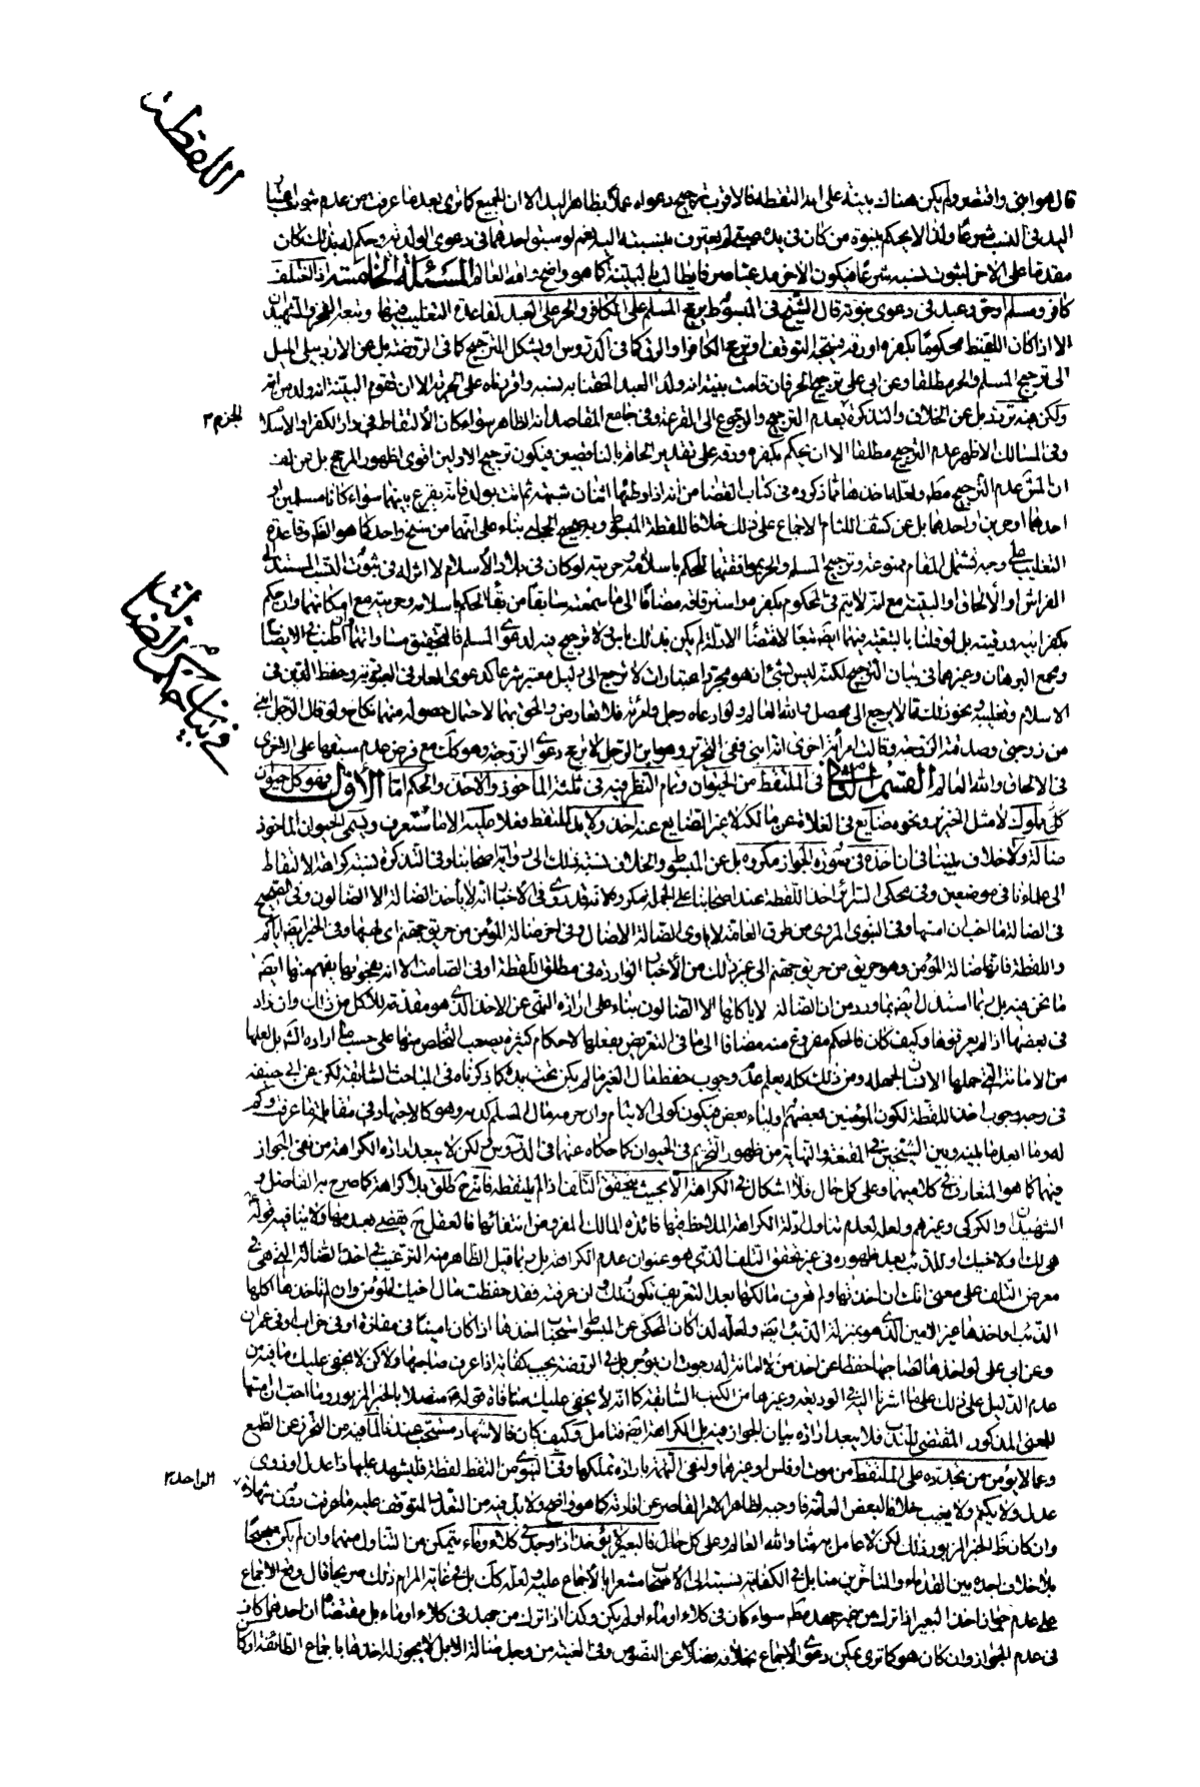 اللقطة
قال هو ابني واقتصر ولم يكن هناك بينة على انه التقطه فالاقرب ترجيح دعواه عملا بظاهر اليد الا ان الجميع كما ترى بعد ما عرفت من عدم ثبوت اعتبار
اليد في النسب شرعا ولذا لا يحكم ببنوة من كان في يده صبي لم يعترف بنسبته اليه نعم لو سبق احدهما في دعوى الولد وحكم له بذلك كان
مقدما على الاخر لثبوت نسبه شرعا فيكون الاخر مدعيا صرفا يطالب بالبينة كما هو واضح والله العالم المسئلة الخامسة اذا اختلف
كافر ومسلم او حر وعبد في دعوى بنوته قال الشيخ في المبسوط يرجح المسلم على الكافر والحر على العبد لقاعدة التغليب فيهما وتبعه الفخر والشهيدان
الا اذا كان اللقيط محكوما بكفره او رقه فيتجه التوقف او ترجيح الكافر او الرق كما في الدروس او يشكل الترجيح كما في الروضة بل عن الاردبيلي الميل
الى ترجيح المسلم والحر مطلقا وعن ابي علي ترجيح الحر فان قامت بينة انه ولد العبد الحقنا به نسبه واقررناه على الحرية الا ان تقوم البينة انه ولد من امة
ولكن فيه تردد بل عن الخلاف والتذكرة بعدم الترجيح والرجوع الى القرعة وفي جامع المقاصد انه الظاهر سواء كان الالتقاط في دار الكفر او الاسلام
وفي المسالك الاظهر عدم الترجيح مطلقا الا ان يحكم بكفره ورقه على تقدير الحاقه بالناقصين فيكون ترجيح الاولين اقوى لظهور المرجح بل من
ان عدم الترجيح ولعله اخذه مما ذكروه في كتاب القضا من انه اذا وطئها اثنان شبهة ثم اتت بولد فانه يقرع بينهما سواء كانا مسلمين او
احدهما او حرين او احدهما بل عن كشف اللثام الاجماع على ذلك خلافا للقطة المبسوط بناء على انهما من سنخ واحد كما هو وقاعدة
التغليب على وجه تشمل المقام ممنوعة وترجيح المسلم والحر بموافقتهما للحكم باسلامه وحريته لو كان في بلاد الاسلام لا اثر له في ثبوت النسب المستند الى
الفراش او الالحاق او البينة مع انه لا يتم في المحكوم بكفره او استرقاقه مضافا الى ما سمعته سابقا من بقاء الحكم باسلامه وحريته مع امكانهما وان حكم
بكفر ابيه ورقيته بل لو قلنا بالتبعية فيهما ايضا تبعا لاقتضا الادلة لم يكن بذلك باس لا ترجيح فيه لدعوى المسلم فالتحقيق مساواتهما اطنب في الايضاح
ومجمع البرهان وغيرهما في بيان الترجيح لكنه ليس بشئ اذ هو مجرد اعتبارات لا ترجع الى دليل معتبر شرعا كدعوى المعارف في العبودية وحفظ الدين في
الاسلام وتغليبه ونحو ذلك مما لا يرجع الى محصل والله العالم ولو ادعاه رجل وامرئة فلا تعارض والحق بهما لاحتمال حصوله منهما بنكاح ولو قال الرجل ابني
من زوجتي وصدقته الزوجة وقالت امرأة اخرى انه ابني ففي التحرير هو ابن الرجل لا ترجيح دعوى الزوجة وهو كك مع فرض عدم سبقها على الاخرى
في الالحاق والله العالم القسم الثاني في الملتقط من الحيوان وتمام النظر فيه في ثلثة الماخوذ والآخذ والحكم اما الاول فهو كل حيوان
كل مملوك لا مثل الخنزير ونحوه ضايع في الفلاة عن مالكه لا غير الضايع عنه اخذ ولا يد للملتقط فعلا عليه الا ما ستعرف ويسمى الحيوان الماخوذ
ضالة ولا خلاف بيننا في ان اخذه في صورة الجواز مكروه بل عن المبسوط والخلاف نسبة ذلك الى رواية اصحابنا وفي التذكرة نسبة كراهة الالتقاط
الى علمائنا في موضعين وفي محكي السرائر اخذ اللقطة عند اصحابنا على الجملة مكروه لانه قد روى في الاخبار انه لا يأخذ الضالة الا الضالون وفي الصحيح
في الضالة ما احب ان امسها وفي النبوي المروي من طرق العامة لا ياوي الضالة الا الضال وفي اخر ضالة المؤمن من حريق جهنم اي لهبها وفي الخبر ايضا اياكم
واللقطة فانها ضالة المؤمن وهو حريق من حريق جهنم الى غير ذلك من الاخبار الواردة في مطلق اللقطة او في الصامت الا انه بفحويها يفهم منها ايضا
ما نحن فيه بل ربما استدل ايضا بما ورد من ان الضالة لا ياكلها الا الضالون بناء على ارادة النهى عن الاخذ الذي هو مقدمة للاكل من ذلك وان زاد
في بعضها اذا لم يعرفوها وكيف كان فالحكم مفروغ منه مضافا الى ما في التعرض بفعلها لاحكام كثيرة يصعب التخلص منها على حسب ما اراده الشارع بل لعلها
من الامانة التي حملها الانسان الجهلة ومن ذلك كله يعلم عدم وجوب حفظ مال الغير ما لم يكن تحت يده كما ذكرناه في المباحث السابقة لكن عن ابي حنيفة
في وجه وجوب اخذ اللقطة لكون المؤمنين بعضهم اولياء بعض فيكون كولي الايتام وان حرمة مال المسلم كدمه وهو كالاجتهاد في مقابلة ما عرفت وكم
له وما ابعد ما بينه وبين الشيخين في المقنعة والنهاية من ظهور التحريم في الحيوان كما حكاه عنهما في الدروس لكن لا يبعد ارادة الكراهة من نفي الجواز
فيهما كما هو المتعارف في كلاميهما وعلى كل حال فلا اشكال في الكراهة الا بحيث يتحقق التلف اذا لم يلتقطه فانه حينئذ طلق بلا كراهة كما صرح به الفاضل و
الشهيدان والكركي وغيرهم ولعله لعدم تناول ادلة الكراهة الملاحظ فيها فائدة المالك المفروض انتفائها فالعقل ح يقضي بعدمها ولا ينافيه قوله
هي لك او لاخيك او للذئب بعد ظهوره في غير تحقق التلف الذي هو عنوان عدم الكراهة بل ربما قيل الظاهر منه الترغيب في اخذ الضالة التي هي في
معرض التلف على معنى انك ان اخذتها ولم تعرف مالكها بعد التعريف تكون لك وان عرفته فقد حفظت مال اخيك المؤمن وان لم تاخذها اكلها
الذئب او اخذها غير الامين الذي هو بمنزلة الذئب ايضا ولعله لذا كان المحكي عن المبسوط استحباب اخذها اذا كان امينا في مفازة او في خراب او في عمران
وعن ابي علي لو اخذها لصاحبها حفظا عن اخذ من لا امانة له رجوت ان يؤجر بل في الروضة يجب كفاية اذا عرف صاحبها ولكن لا يخفى عليك ما فيه من
عدم الدليل على ذلك على ما اشرنا اليه في الوديعة وغيرها من الكتب السابقة كما انه لا يخفى عليك منافاة قوله متصلا بالخبر المزبور وما احب ان امسها
للمعنى المذكور المقتضي للندب فلا يبعد ارادة بيان الجواز فيه بل الكراهة ايضا فتامل وكيف كان فالاشهاد مستحب عندنا لما فيه من التحرز عن الطمع
وعما لا يؤمن من تجدده على الملتقط من موت او فلس او غيرهما ولنفي التهمة بارادة تملكها وفي النبوي من التقط لقطة فليشهد عليها ذا عدل او ذوي
عدل ولا يكتم ولا يغيب خلافا لبعض العامة فاوجبه لظاهر الامر القاصر عن افادته كما هو واضح ولا بد فيه من التعدد المتوقف عليه ما عرفت دون شهادة
وان كان ظ الخبر المزبور ذلك لكن لا عامل به منا والله العالم وعلى كل حال فالبعير لا يؤخذ اذا وجد في كلاء وماء يتمكن من التناول منهما وان لم يكن صحيحا
بلا خلاف اجده بين القدماء والمتأخرين منا بل في الكفاية نسبته الى الاصحاب مشعرا بالاجماع عليه ولعله كك بل في غاية المرام ذلك صريحا قال وقع الاجماع
على عدم جواز اخذ البعير اذا ترك من غير جهد سواء كان في كلاء وماء او لم يكن وكذا اذا ترك من جهد في كلاء وماء بل مقتضاه ان احدهما كاف
في عدم الجواز وان كان هو كما ترى يمكن دعوى الاجماع بخلافه فضلا عن النصوص وفي الغنية من وجد ضالة الابل لا يجوز له اخذها باجماع الطائفة او كان
الجزء ٣
في بيان حكم الضالة
الواحد ٢